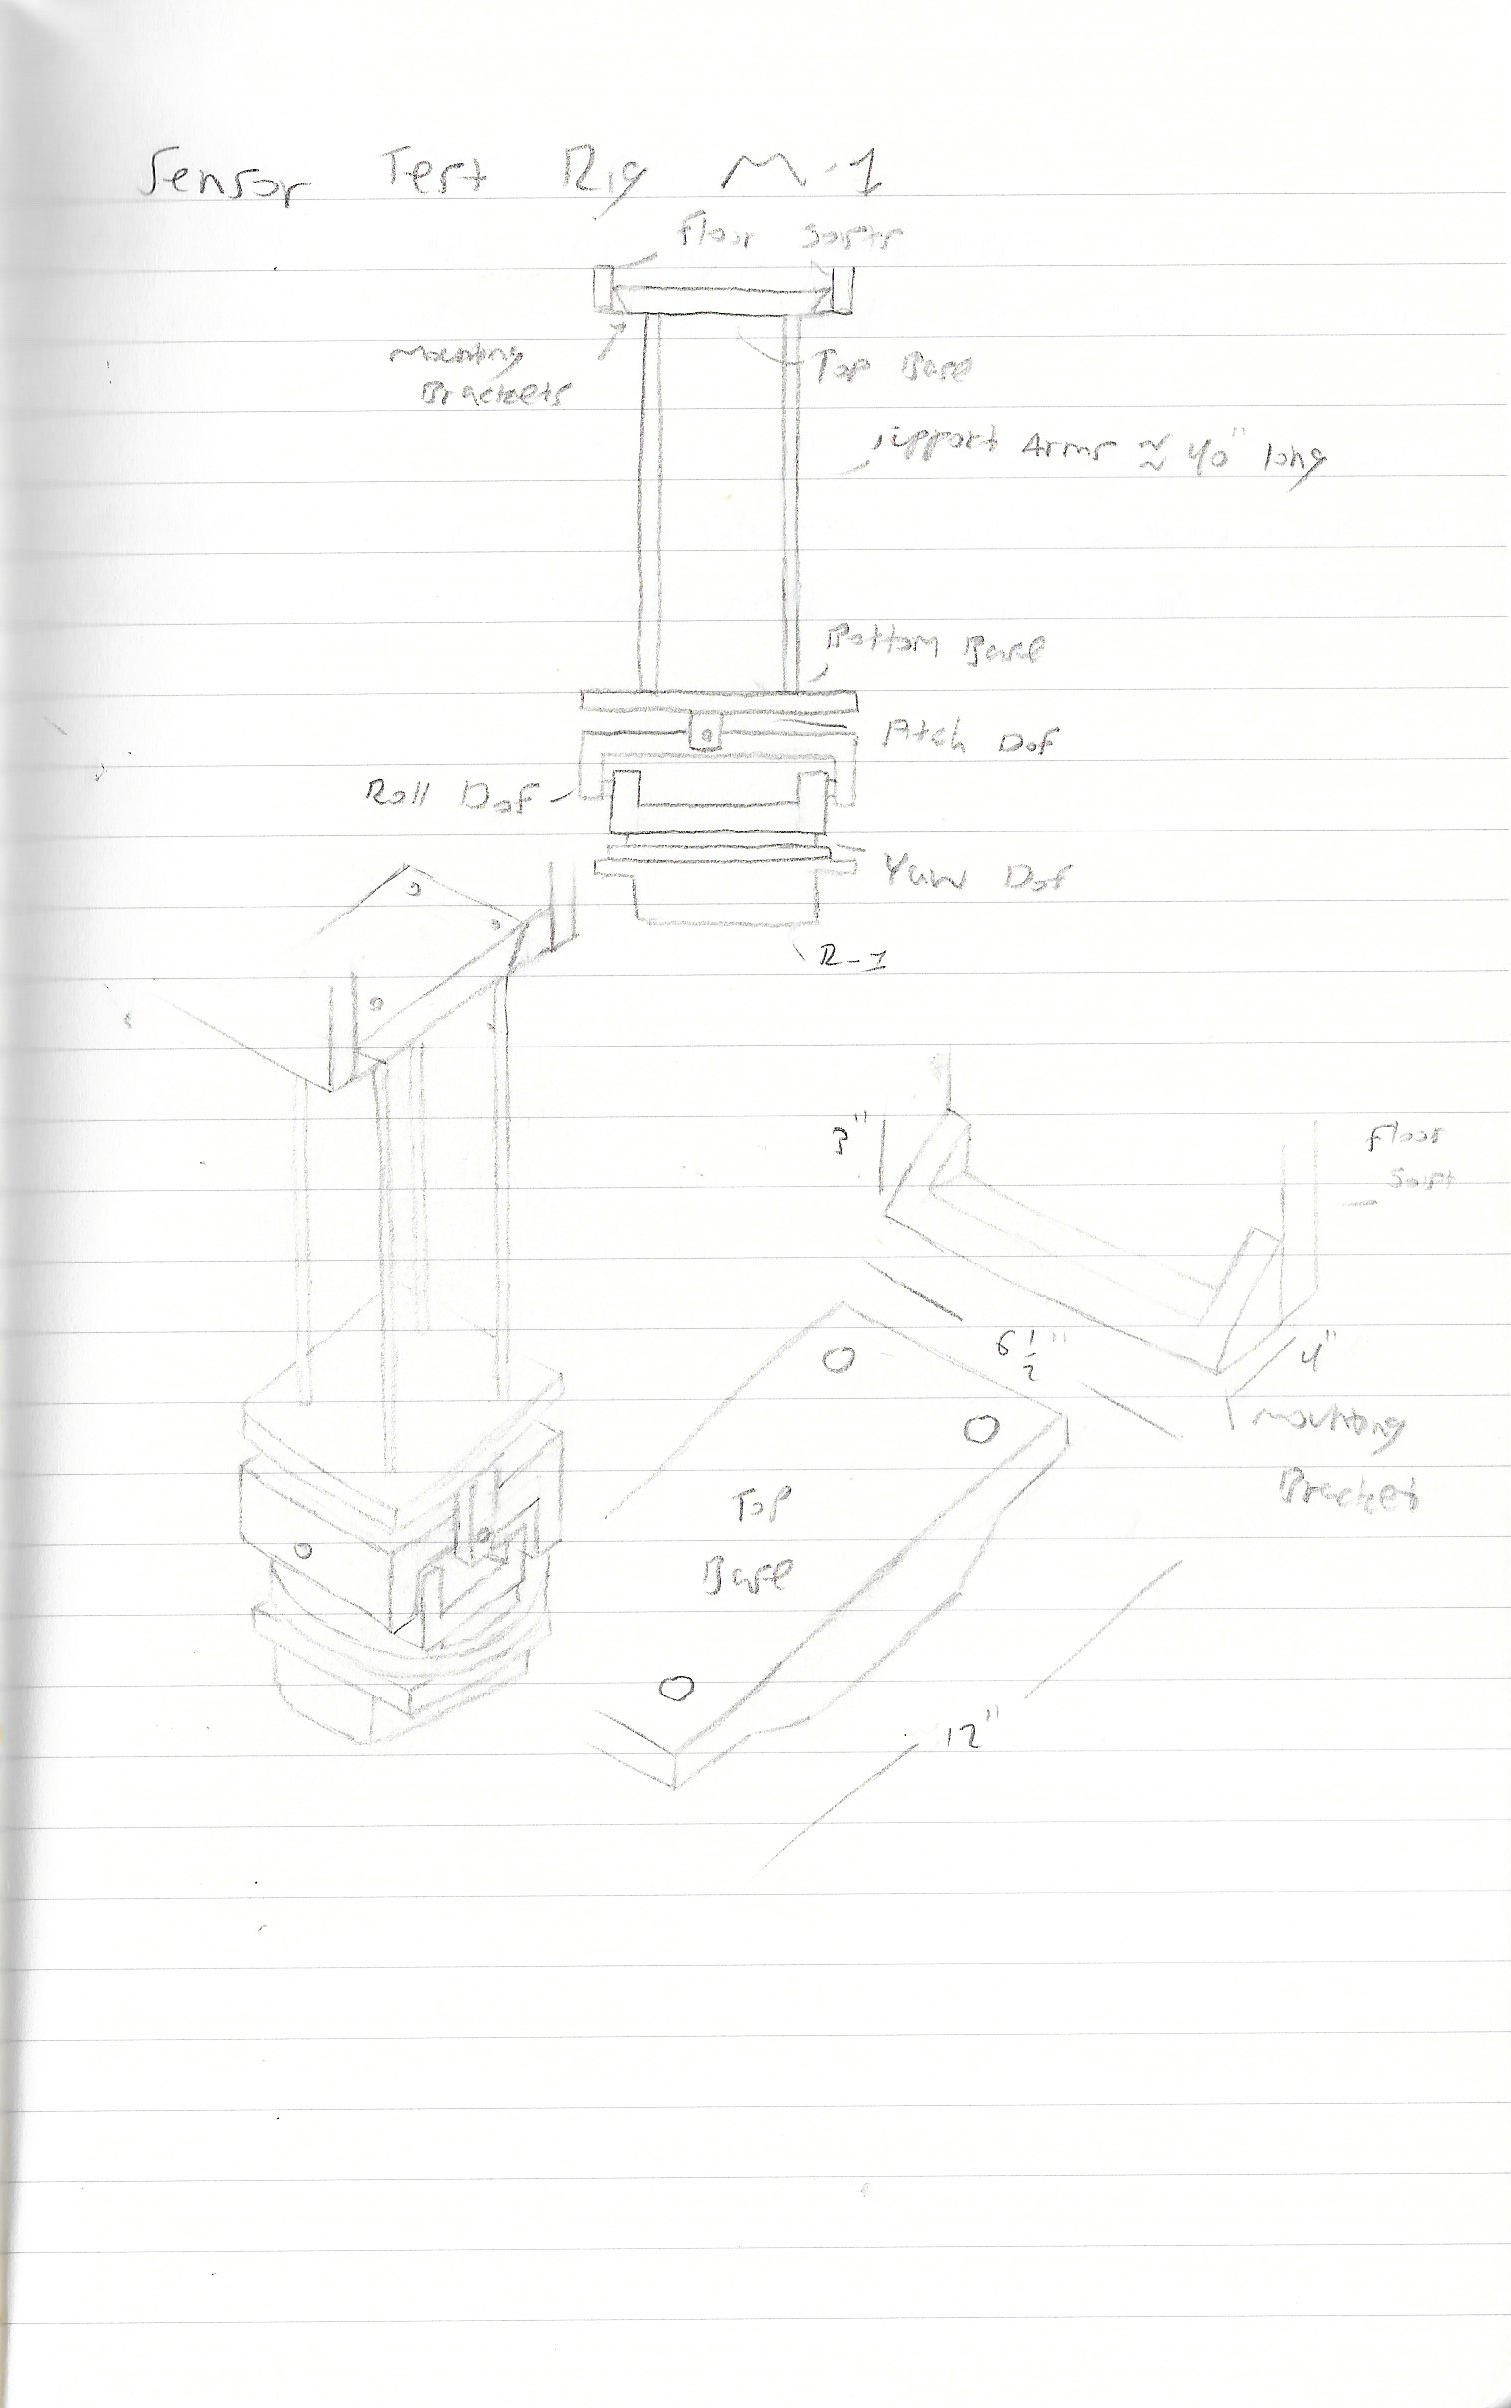 Sensor Test Rig M-1
Floor Joists
Mounting
Brackets
Top Base
support Arms ≈ 40" long
Bottom Base
Pitch Dof
Roll Dof
Yaw Dof
R-1
3"
Floor
Joist
6 1/2"
4"
Mounting
Bracket
Top
Base
12"